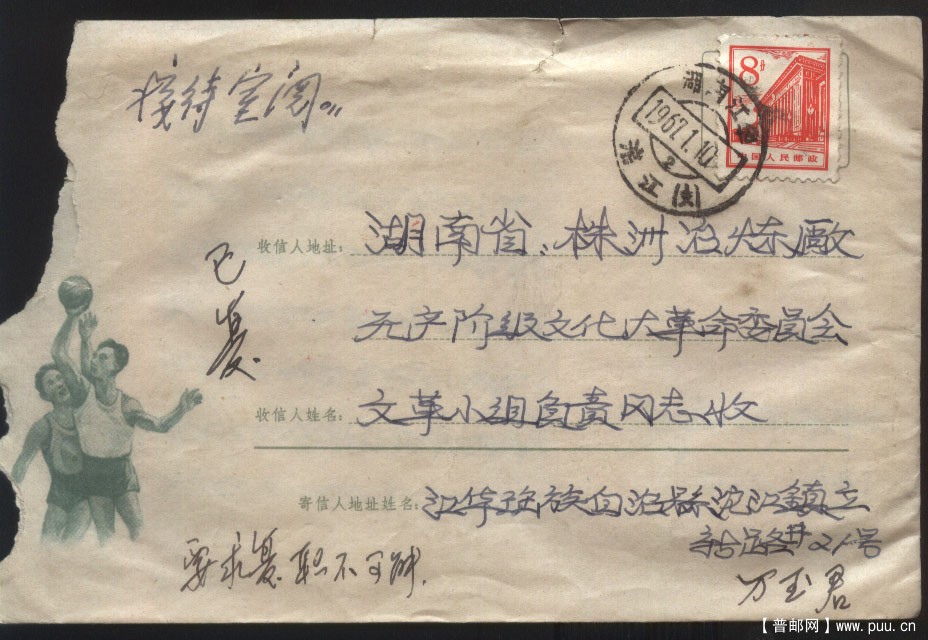 接待室阅。
8分
中国人民邮政
湖南江华
1967.1.10
沱江(支)
已复
收信人地址: 湖南省、株洲冶炼厰
无产阶级文化大革命委员会
收信人姓名: 文革小组负责同志收
寄信人地址姓名: 江华瑶族自治县沱江鎮立
21号
万玉君
要求复职不可能.
【普邮网】www.puu.cn